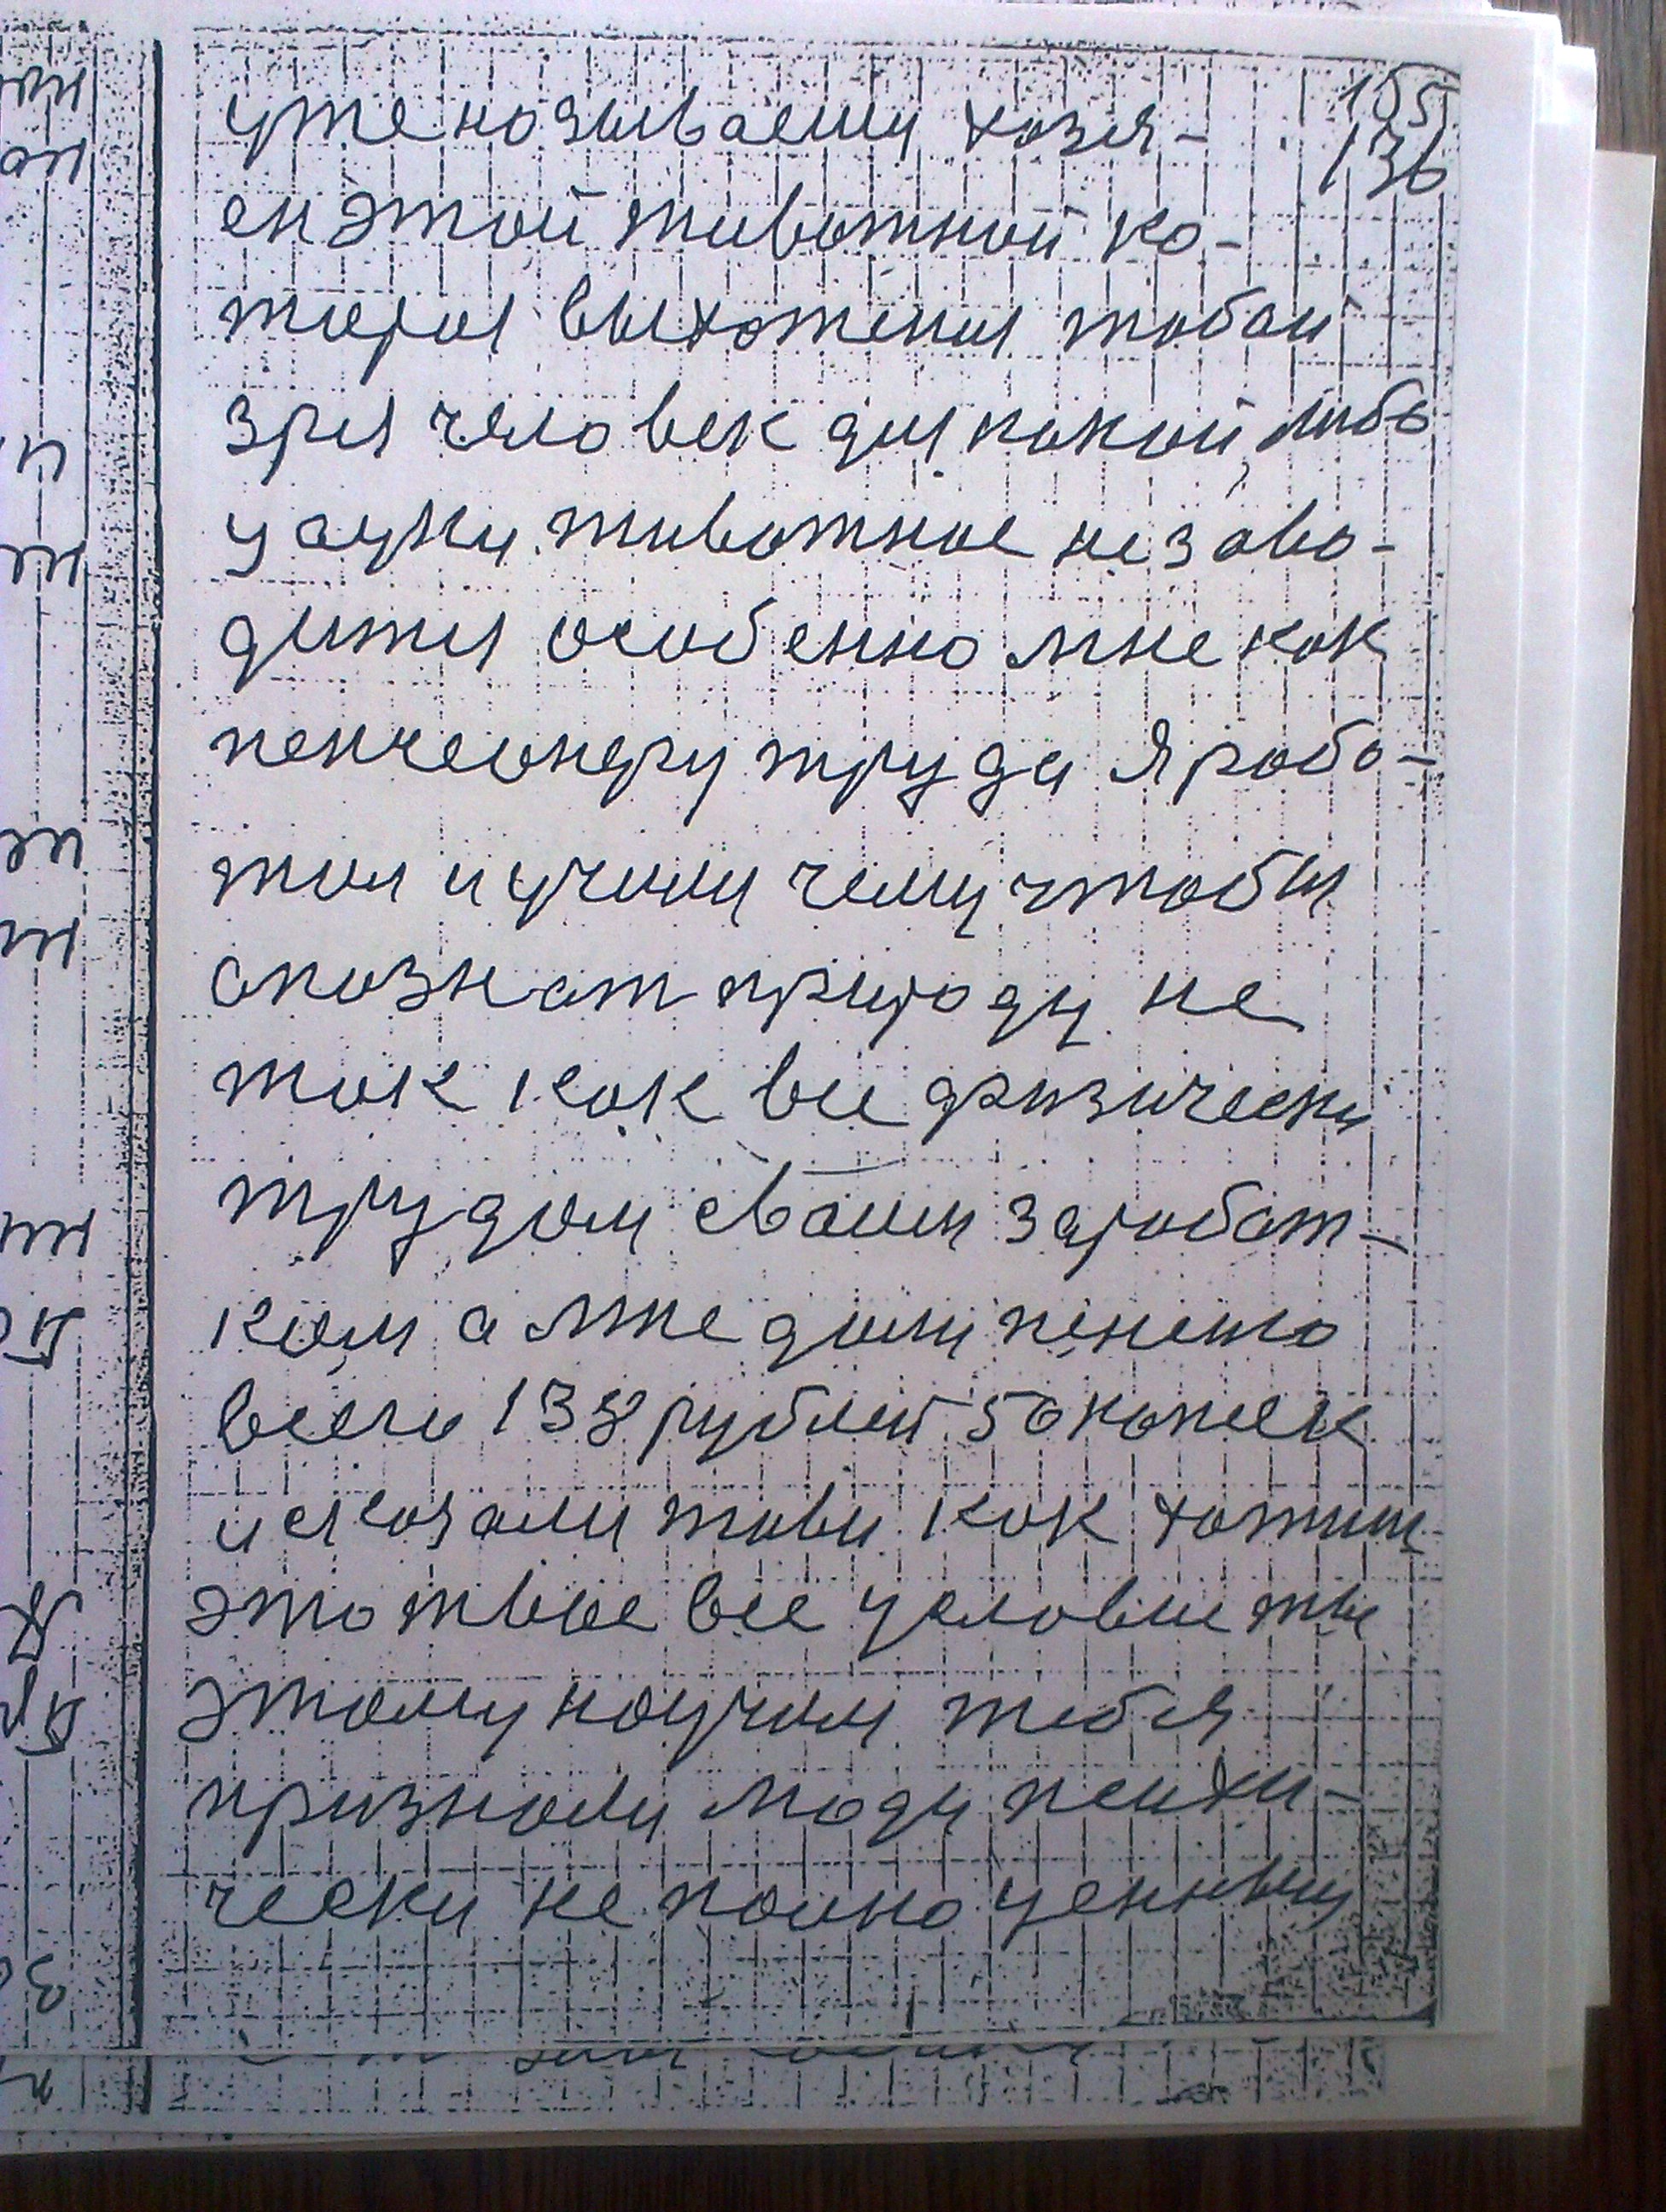 155
136
уже называему хозя-
ен этой животной ка-
торая выхоженая тобой
зря человек для какой, либо
у ауки животное не заво-
дится особенно мне как
пенчеонеру труда Я рабо-
тал и учили чему чтобы
спознат природу не
так как все физически
трудом своим заработ-
ком а мне дали пенсию
всего 138 рублей 50 копеек
и сказали живи как хотиш
это твое все условие ты
этому научил тебя
признали моду психи-
чески не полно ценным